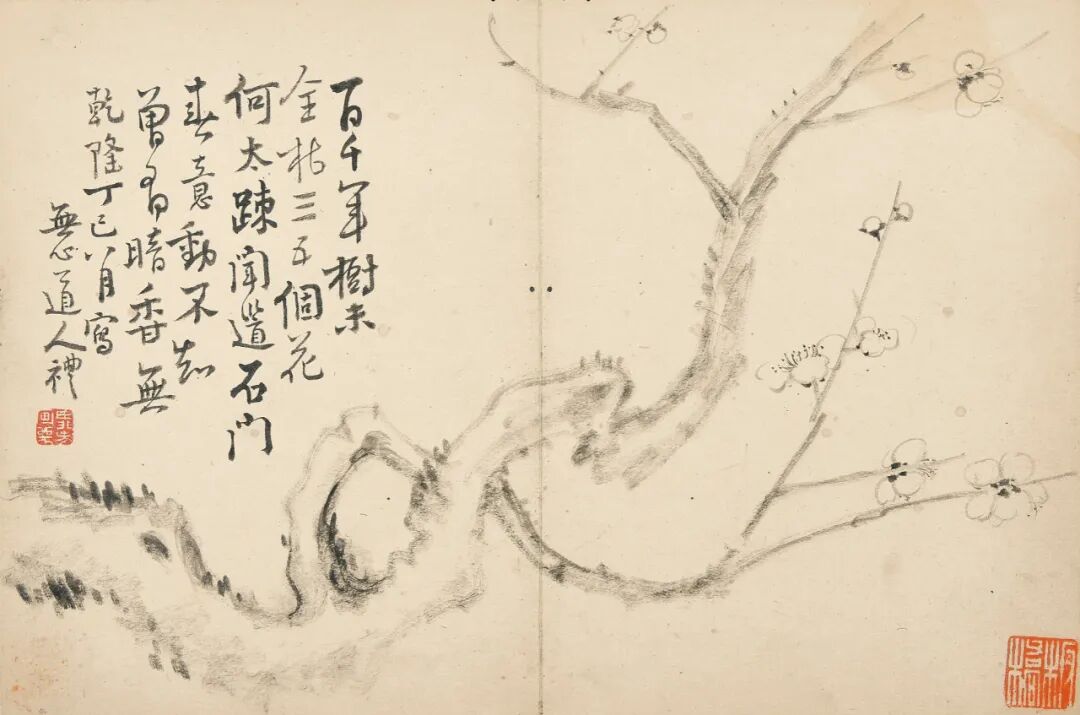 百千年樹未
全枯三五個花
何太疎聞道石門
春意動不知
曾有暗香無
乾隆丁巳八月寫
無心道人禮
板橋